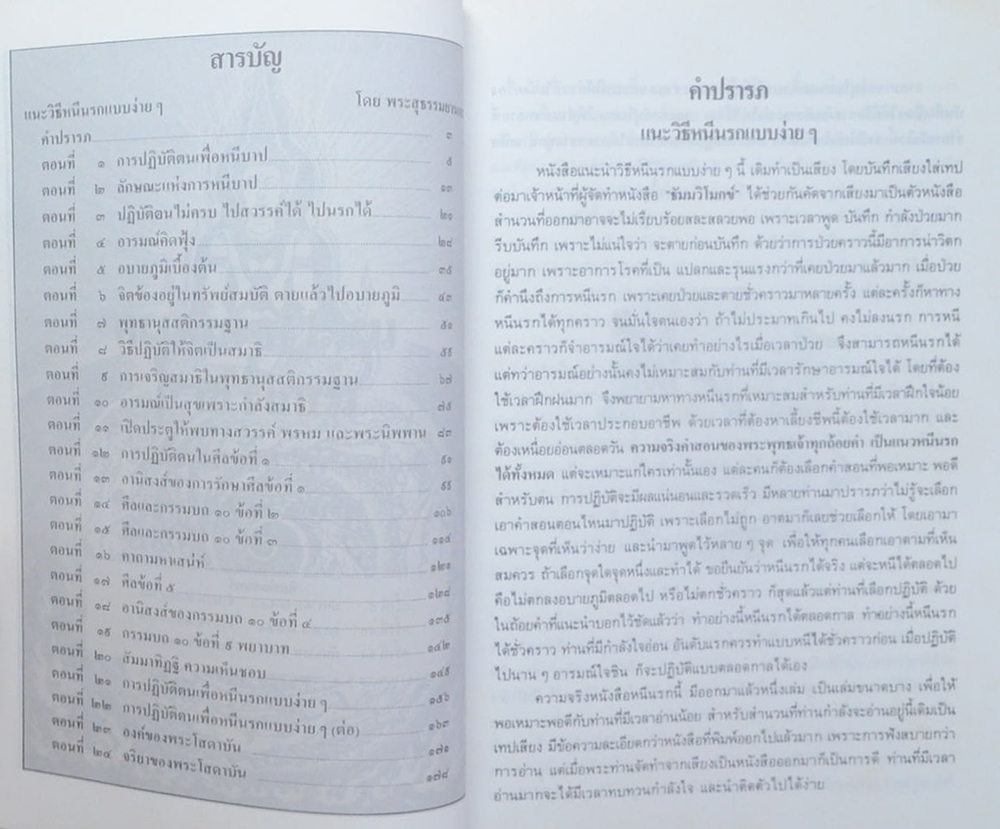 สารบัญ
แนะวิธีหนีนรกแบบง่าย ๆ โดย พระสุธรรมยาน
คำปรารภ ๑
ตอนที่ ๑ การปฏิบัติตนเพื่อหนีบาป ๕
ตอนที่ ๒ ลักษณะแห่งการหนีบาป ๑๓
ตอนที่ ๓ ปฏิบัติตนไม่ครบ ไปสวรรค์ได้ ไปนรกได้ ๒๑
ตอนที่ ๔ อารมณ์คิดฟุ้ง ๒๘
ตอนที่ ๕ อบายภูมิเบื้องต้น ๓๕
ตอนที่ ๖ จิตข้องอยู่ในทรัพย์สมบัติ ตายแล้วไปอบายภูมิ ๔๓
ตอนที่ ๗ พุทธานุสสติกรรมฐาน ๕๑
ตอนที่ ๘ วิธีปฏิบัติให้จิตเป็นสมาธิ ๕๙
ตอนที่ ๙ การเจริญสมาธิในพุทธานุสสติกรรมฐาน ๖๗
ตอนที่ ๑๐ อารมณ์เป็นสุขเพราะกำลังสมาธิ ๗๕
ตอนที่ ๑๑ เปิดประตูให้พบทางสวรรค์ พรหม และพระนิพพาน ๘๓
ตอนที่ ๑๒ การปฏิบัติตนในศีลข้อที่ ๑ ๙๑
ตอนที่ ๑๓ อานิสงส์ของการรักษาศีลข้อที่ ๑ ๙๙
ตอนที่ ๑๔ ศีลและกรรมบถ ๑๐ ข้อที่ ๒ ๑๐๖
ตอนที่ ๑๕ ศีลและกรรมบถ ๑๐ ข้อที่ ๓ ๑๑๔
ตอนที่ ๑๖ คาถามหาเสน่ห์ ๑๒๑
ตอนที่ ๑๗ ศีลข้อที่ ๕ ๑๒๘
ตอนที่ ๑๘ อานิสงส์ของกรรมบถ ๑๐ ข้อที่ ๔ ๑๓๕
ตอนที่ ๑๙ กรรมบถ ๑๐ ข้อที่ ๙ พยาบาท ๑๔๒
ตอนที่ ๒๐ สัมมาทิฏฐิ ความเห็นชอบ ๑๔๙
ตอนที่ ๒๑ การปฏิบัติตนเพื่อหนีนรกแบบง่าย ๆ ๑๕๖
ตอนที่ ๒๒ การปฏิบัติตนเพื่อหนีนรกแบบง่าย ๆ (ต่อ) ๑๖๓
ตอนที่ ๒๓ องค์ของพระโสดาบัน ๑๗๑
ตอนที่ ๒๔ จริยาของพระโสดาบัน ๑๗๘
คำปรารภ
แนะวิธีหนีนรกแบบง่าย ๆ
หนังสือแนะนำวิธีหนีนรกแบบง่าย ๆ นี้ เดิมทำเป็นเสียง โดยบันทึกเสียงใส่เทป
ต่อมาเจ้าหน้าที่ผู้จัดทำหนังสือ "ธัมมวิโมกข์" ได้ช่วยกันคัดจากเสียงมาเป็นตัวหนังสือ
สำนวนที่ออกมาอาจจะไม่เรียบร้อยสละสลวยพอ เพราะเวลาพูด บันทึก กำลังป่วยมาก
รีบบันทึก เพราะไม่แน่ใจว่า จะตายก่อนบันทึก ด้วยว่าการป่วยคราวนี้มีอาการน่าวิตก
อยู่มาก เพราะอาการโรคที่เป็น แปลกและรุนแรงกว่าที่เคยป่วยมาแล้วมาก เมื่อป่วย
ก็คำนึงถึงการหนีนรก เพราะเคยป่วยและตายชั่วคราวมาหลายครั้ง แต่ละครั้งก็หาทาง
หนีนรกได้ทุกคราว จนมั่นใจตนเองว่า ถ้าไม่ประมาทเกินไป คงไม่ลงนรก การหนี
แต่ละคราวก็จำอารมณ์ได้ว่าเคยทำอย่างไรเมื่อเวลาป่วย จึงสามารถหนีนรกได้
แต่ทว่าอารมณ์อย่างนั้นคงไม่เหมาะสมกับท่านที่มีเวลารักษาอารมณ์ใจได้ โดยที่ต้อง
ใช้เวลาฝึกฝนมาก จึงพยายามหาทางหนีนรกที่เหมาะสมสำหรับท่านที่มีเวลาฝึกใจน้อย
เพราะต้องใช้เวลาประกอบอาชีพ ด้วยเวลาที่ต้องหาเลี้ยงชีพนี้ต้องใช้เวลามาก และ
ต้องเหนื่อยอ่อนตลอดวัน ความจริงคำสอนของพระพุทธเจ้าทุกถ้อยคำ เป็นแนวหนีนรก
ได้ทั้งหมด แต่จะเหมาะแก่ใครเท่านั้นเอง แต่ละคนก็ต้องเลือกคำสอนที่พอเหมาะ พอดี
สำหรับตน การปฏิบัติจะมีผลแน่นอนและรวดเร็ว มีหลายท่านมาปรารภว่าไม่รู้จะเลือก
เอาคำสอนตอนไหนมาปฏิบัติ เพราะเลือกไม่ถูก อาตมาก็เลยช่วยเลือกให้ โดยเอามา
เฉพาะจุดที่เห็นว่าง่าย และนำมาพูดไว้หลาย ๆ จุด เพื่อให้ทุกคนเลือกเอาตามที่เห็น
สมควร ถ้าเลือกจุดใดจุดหนึ่งและทำได้ ขอยืนยันว่าหนีนรกได้จริง แต่จะหนีได้ตลอดไป
คือไม่ตกลงอบายภูมิตลอดไป หรือไม่ตกชั่วคราว ก็สุดแล้วแต่ท่านที่เลือกปฏิบัติ ด้วย
ในถ้อยคำที่แนะนำบอกไว้ชัดแล้วว่า ทำอย่างนี้หนีนรกได้ตลอดกาล ทำอย่างนี้หนีนรก
ได้ชั่วคราว ท่านที่มีกำลังใจอ่อน อันดับแรกควรทำแบบหนีได้ชั่วคราวก่อน เมื่อปฏิบัติ
ไปนาน ๆ อารมณ์ใจชิน ก็จะปฏิบัติแบบตลอดกาลได้เอง
ความจริงหนังสือหนีนรกนี้ มีออกมาแล้วหนึ่งเล่ม เป็นเล่มขนาดบาง เพื่อให้
พอเหมาะพอดีกับท่านที่มีเวลาอ่านน้อย สำหรับสำนวนที่ท่านกำลังจะอ่านอยู่นี้เดิมเป็น
เทปเสียง มีข้อความละเอียดกว่าหนังสือที่พิมพ์ออกไปแล้วมาก เพราะการฟังสบายกว่า
การอ่าน แต่เมื่อพระท่านจัดทำจากเสียงเป็นหนังสือออกมาก็เป็นการดี ท่านที่มีเวลา
อ่านมากจะได้มีเวลาทบทวนกำลังใจ และนำติดตัวไปได้ง่าย